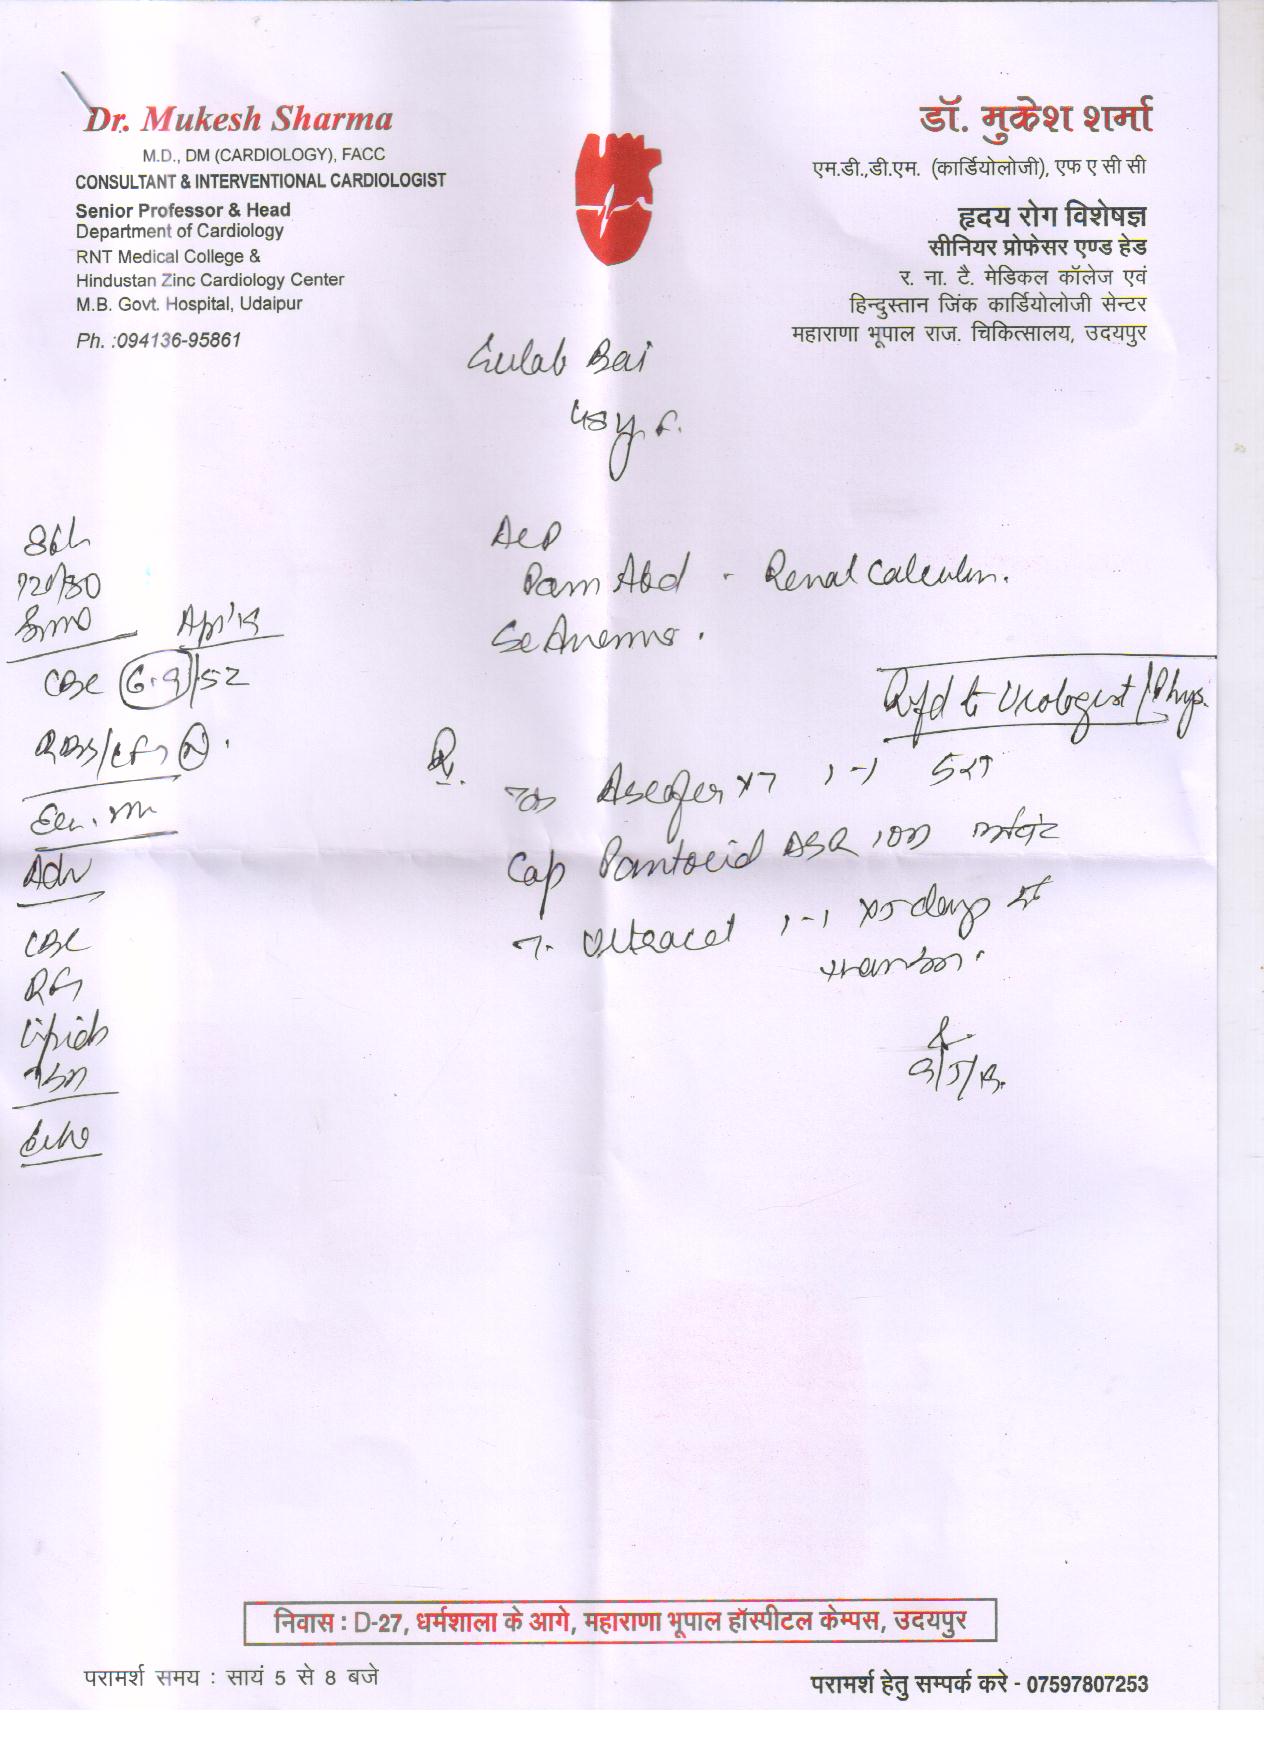 Dr. Mukesh Sharma
M.D., DM (CARDIOLOGY), FACC
CONSULTANT & INTERVENTIONAL CARDIOLOGIST
Senior Professor & Head
Department of Cardiology
RNT Medical College &
Hindustan Zinc Cardiology Center
M.B. Govt. Hospital, Udaipur
Ph. :094136-95861
डॉ. मुकेश शर्मा
एम.डी.,डी.एम. (कार्डियोलोजी), एफ ए सी सी
हृदय रोग विशेषज्ञ
सीनियर प्रोफेसर एण्ड हेड
र. ना. टै. मेडिकल कॉलेज एवं
हिन्दुस्तान जिंक कार्डियोलोजी सेन्टर
महाराणा भूपाल राज. चिकित्सालय, उदयपुर
Gulab Bai
Pain Abd - Renal Calculus.
Se Anemia.
Refd to Urologist/Phys.
CBC 6.9/52
Adv
CBC
Lipids
TSH
Echo
Cap Pantocid DSR 1 OD
T. Ultracet 1-1 x5 days
निवास : D-27, धर्मशाला के आगे, महाराणा भूपाल हॉस्पीटल केम्पस, उदयपुर
परामर्श समय : सायं 5 से 8 बजे
परामर्श हेतु सम्पर्क करे - 07597807253